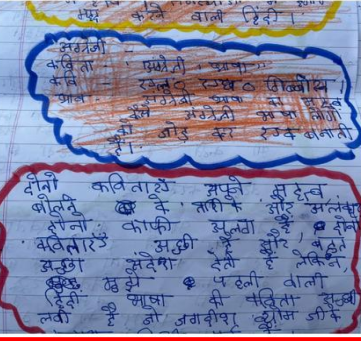 मदद करने वाली हिंदी।
अंग्रेजी -
कविता - अंग्रेजी भाषा
कवि - एल० एस० सिसोदिया
भाव - अंग्रेजी भाषा का महत्व
कैसे अंग्रेजी भाषा लोगो
को जोड़ कर एक बनाती
है।
दोनो कविताएँ अपने महत्व
बोलने के तरीके और अलंकार
दोनो काफी अलग है, दोनो
कविताएँ अच्छी है और, बहुत
अच्छा संदेश देती है लेकिन,
मुझे पहली वाली
हिंदी भाषा की कविता अच्छी
लगी है जो जगदीश श्याम जी के